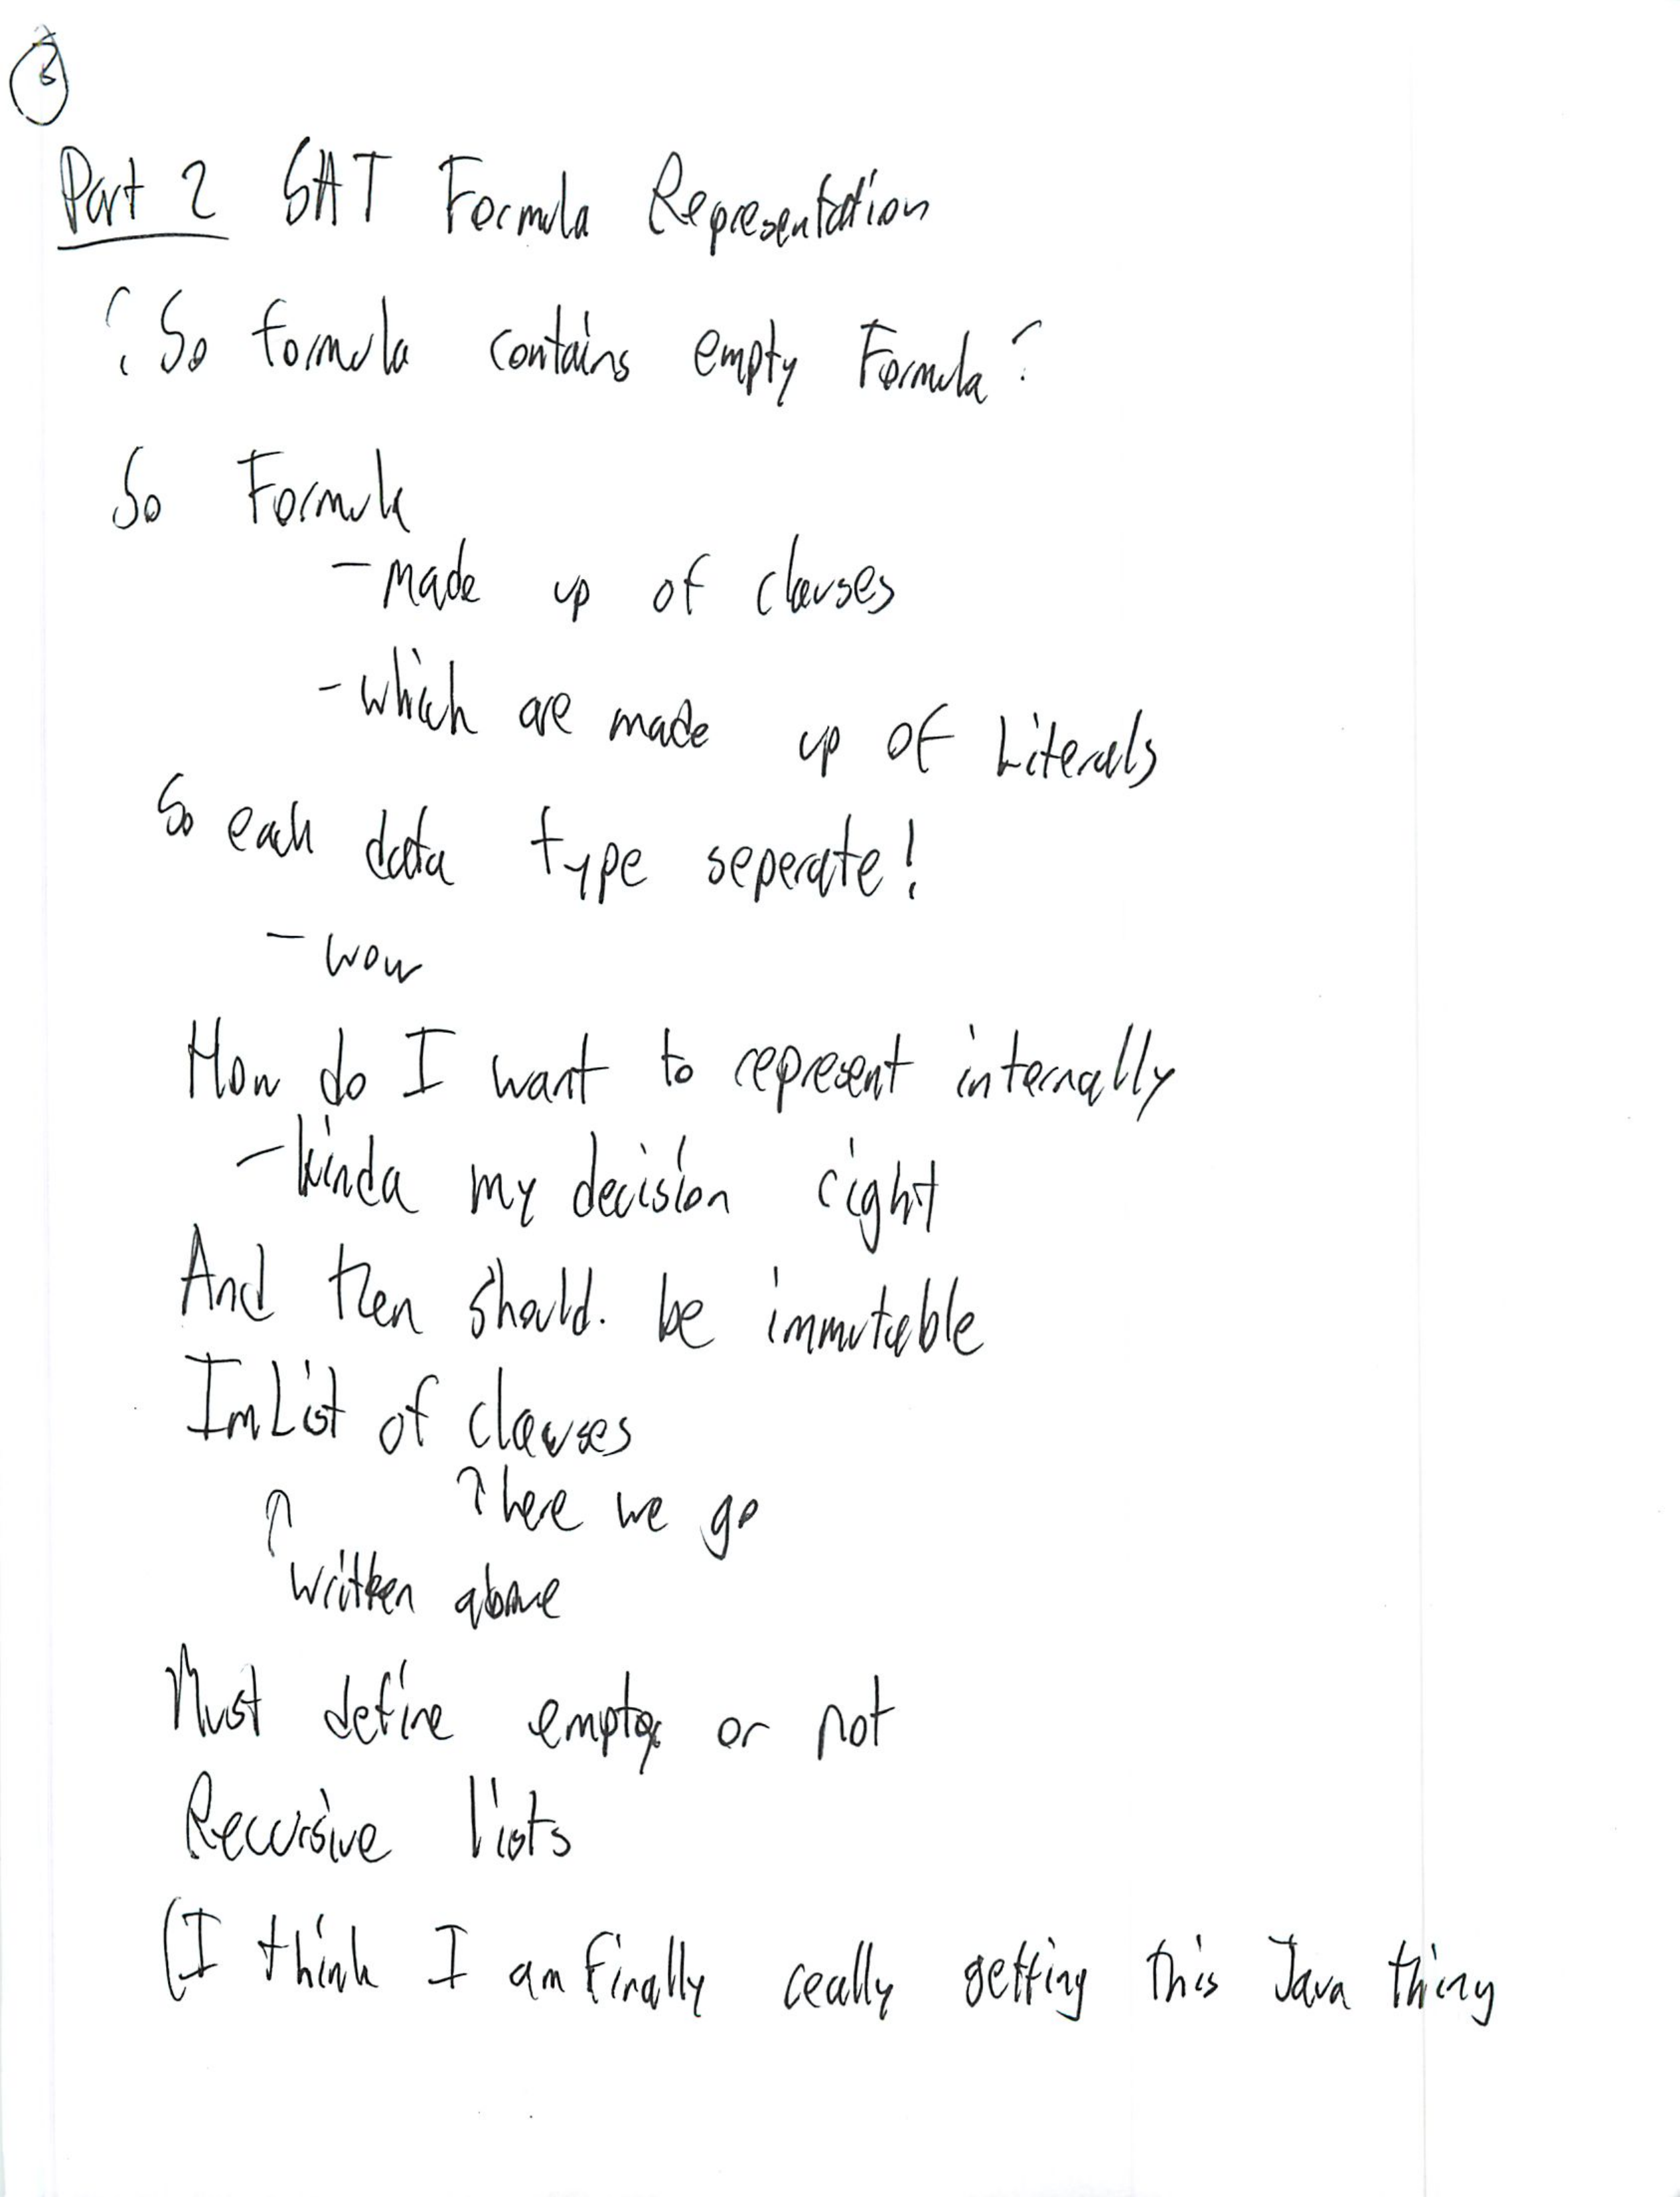 Part 2 SAT Formula Representation
? So formula contains empty Formula?
So Formula
- made up of clauses
- which are made up of Literals
So each data type seperate!
- wow
How do I want to represent internally
- kinda my decision right
And then should be immutable
ImList of clauses
↑ ↑ here we go
written above
Must define empty or not
Recursive lists
(I think I am finally really getting this Java thing